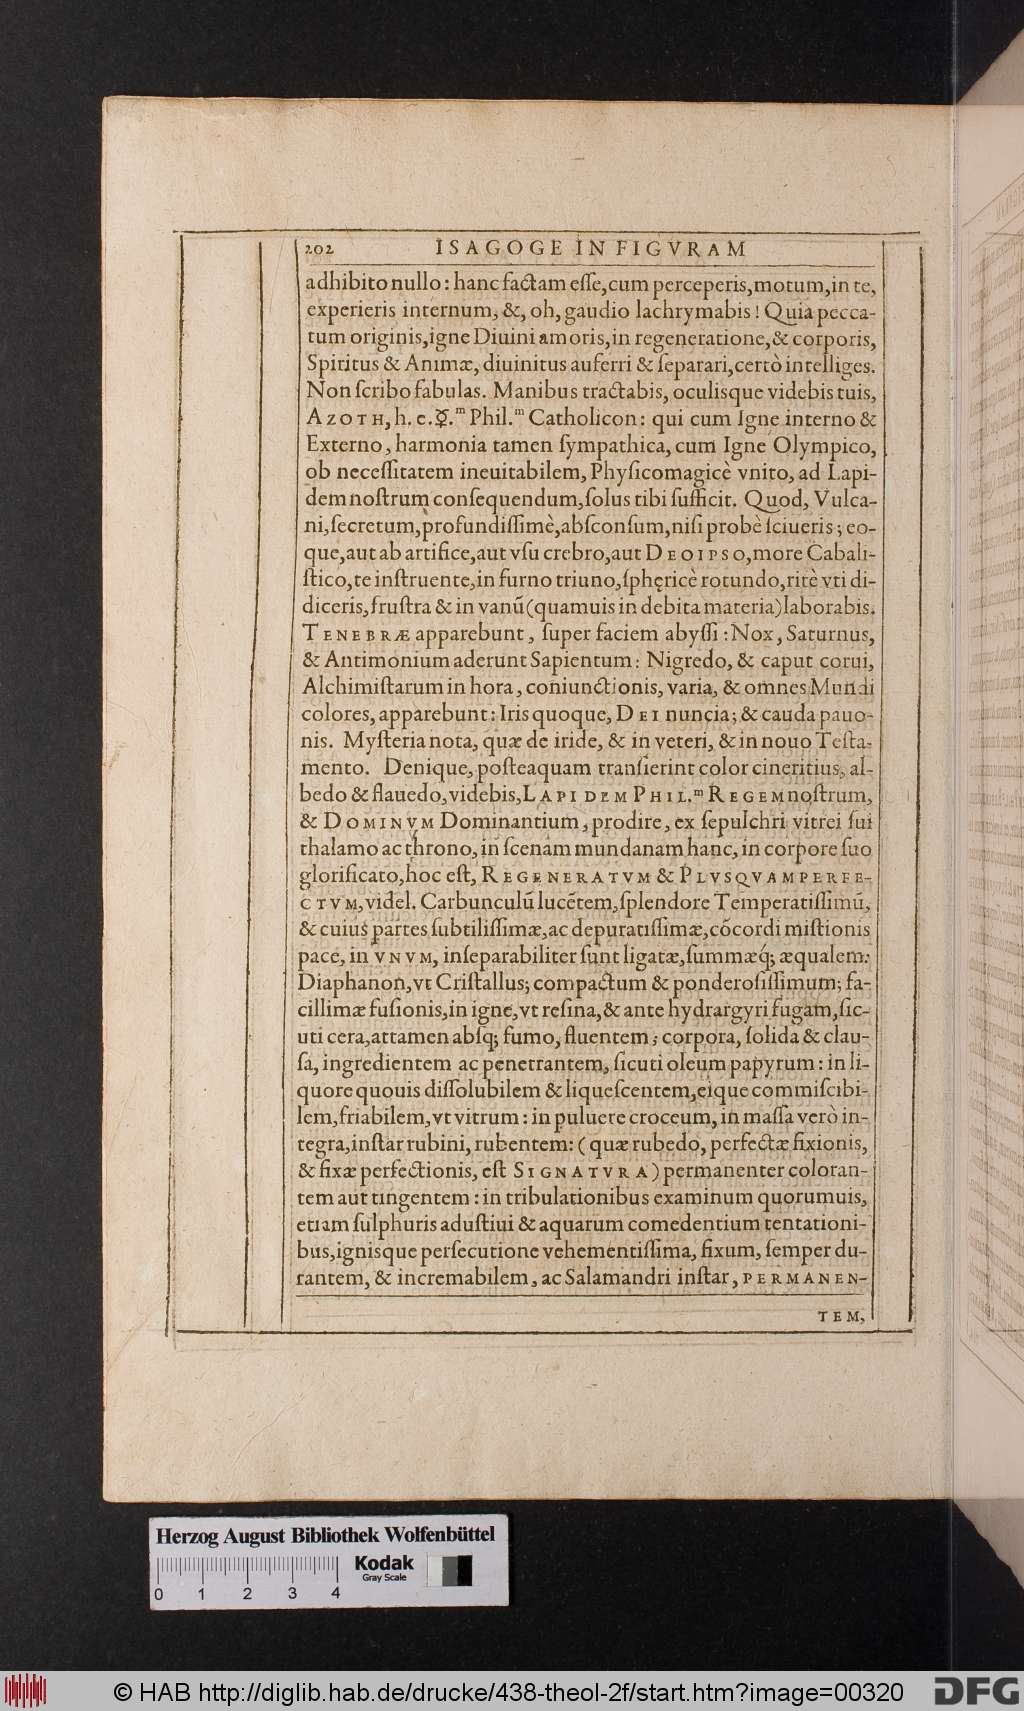 202 ISAGOGE IN FIGVRAM
adhibito nullo: hanc factam eſſe, cum perceperis, motum, in te,
experieris internum, &, oh, gaudio lachrymabis! Quia pecca-
tum originis, igne Diuini amoris, in regeneratione, & corporis,
Spiritus & Animæ, diuinitus auferri & ſeparari, certò intelliges.
Non ſcribo fabulas. Manibus tractabis, oculisque videbis tuis,
AZOTH, h. e. ☿.ᵐ Phil.ᵐ Catholicon: qui cum Igne interno &
Externo, harmonia tamen ſympathica, cum Igne Olympico,
ob neceſſitatem ineuitabilem, Phyſicomagicè vnito, ad Lapi-
dem noſtrum conſequendum, ſolus tibi ſufficit. Quod, Vulca-
ni, ſecretum, profundiſſimè, abſconſum, niſi probè ſciueris; eo-
que, aut ab artifice, aut vſu crebro, aut DEO IPSO, more Cabali-
ſtico, te inſtruente, in furno triuno, ſphęricè rotundo, ritè vti di-
diceris, fruſtra & in vanũ (quamuis in debita materia) laborabis.
TENEBRÆ apparebunt, ſuper faciem abyſſi: Nox, Saturnus,
& Antimonium aderunt Sapientum: Nigredo, & caput corui,
Alchimiſtarum in hora, coniunctionis, varia, & omnes Mundi
colores, apparebunt: Iris quoque, DEI nuncia; & cauda pauo-
nis. Myſteria nota, quæ de iride, & in veteri, & in nouo Teſta-
mento. Denique, poſteaquam tranſierint color cineritius, al-
bedo & flauedo, videbis, LAPIDEM PHIL.ᵐ REGEM noſtrum,
& DOMINVM Dominantium, prodire, ex ſepulchri vitrei ſui
thalamo ac throno, in ſcenam mundanam hanc, in corpore ſuo
glorificato, hoc eſt, REGENERATVM & PLVSQVAMPERFE-
CTVM, videl. Carbunculũ lucẽtem, ſplendore Temperatiſſimũ,
& cuius partes ſubtiliſſimæ, ac depuratiſſimæ, cõcordi miſtionis
pace, in VNVM, inſeparabiliter ſunt ligatæ, ſummæq́; æqualem:
Diaphanon, vt Criſtallus; compactum & ponderoſiſſimum; fa-
cillimæ fuſionis, in igne, vt reſina, & ante hydrargyri fugam, ſic-
uti cera, attamen abſq; fumo, fluentem; corpora, ſolida & clau-
ſa, ingredientem ac penetrantem, ſicuti oleum papyrum: in li-
quore quouis diſſolubilem & liqueſcentem, eique commiſcibi-
lem, friabilem, vt vitrum: in puluere croceum, in maſſa verò in-
tegra, inſtar rubini, rubentem: (quæ rubedo, perfectæ fixionis,
& fixæ perfectionis, eſt SIGNATVRA) permanenter coloran-
tem aut tingentem: in tribulationibus examinum quorumuis,
etiam ſulphuris aduſtiui & aquarum comedentium tentationi-
bus, ignisque perſecutione vehementiſſima, fixum, ſemper du-
rantem, & incremabilem, ac Salamandri inſtar, PERMANEN-
TEM,
Herzog August Bibliothek Wolfenbüttel
Kodak
Gray Scale
0 1 2 3 4
© HAB http://diglib.hab.de/drucke/438-theol-2f/start.htm?image=00320
DFG